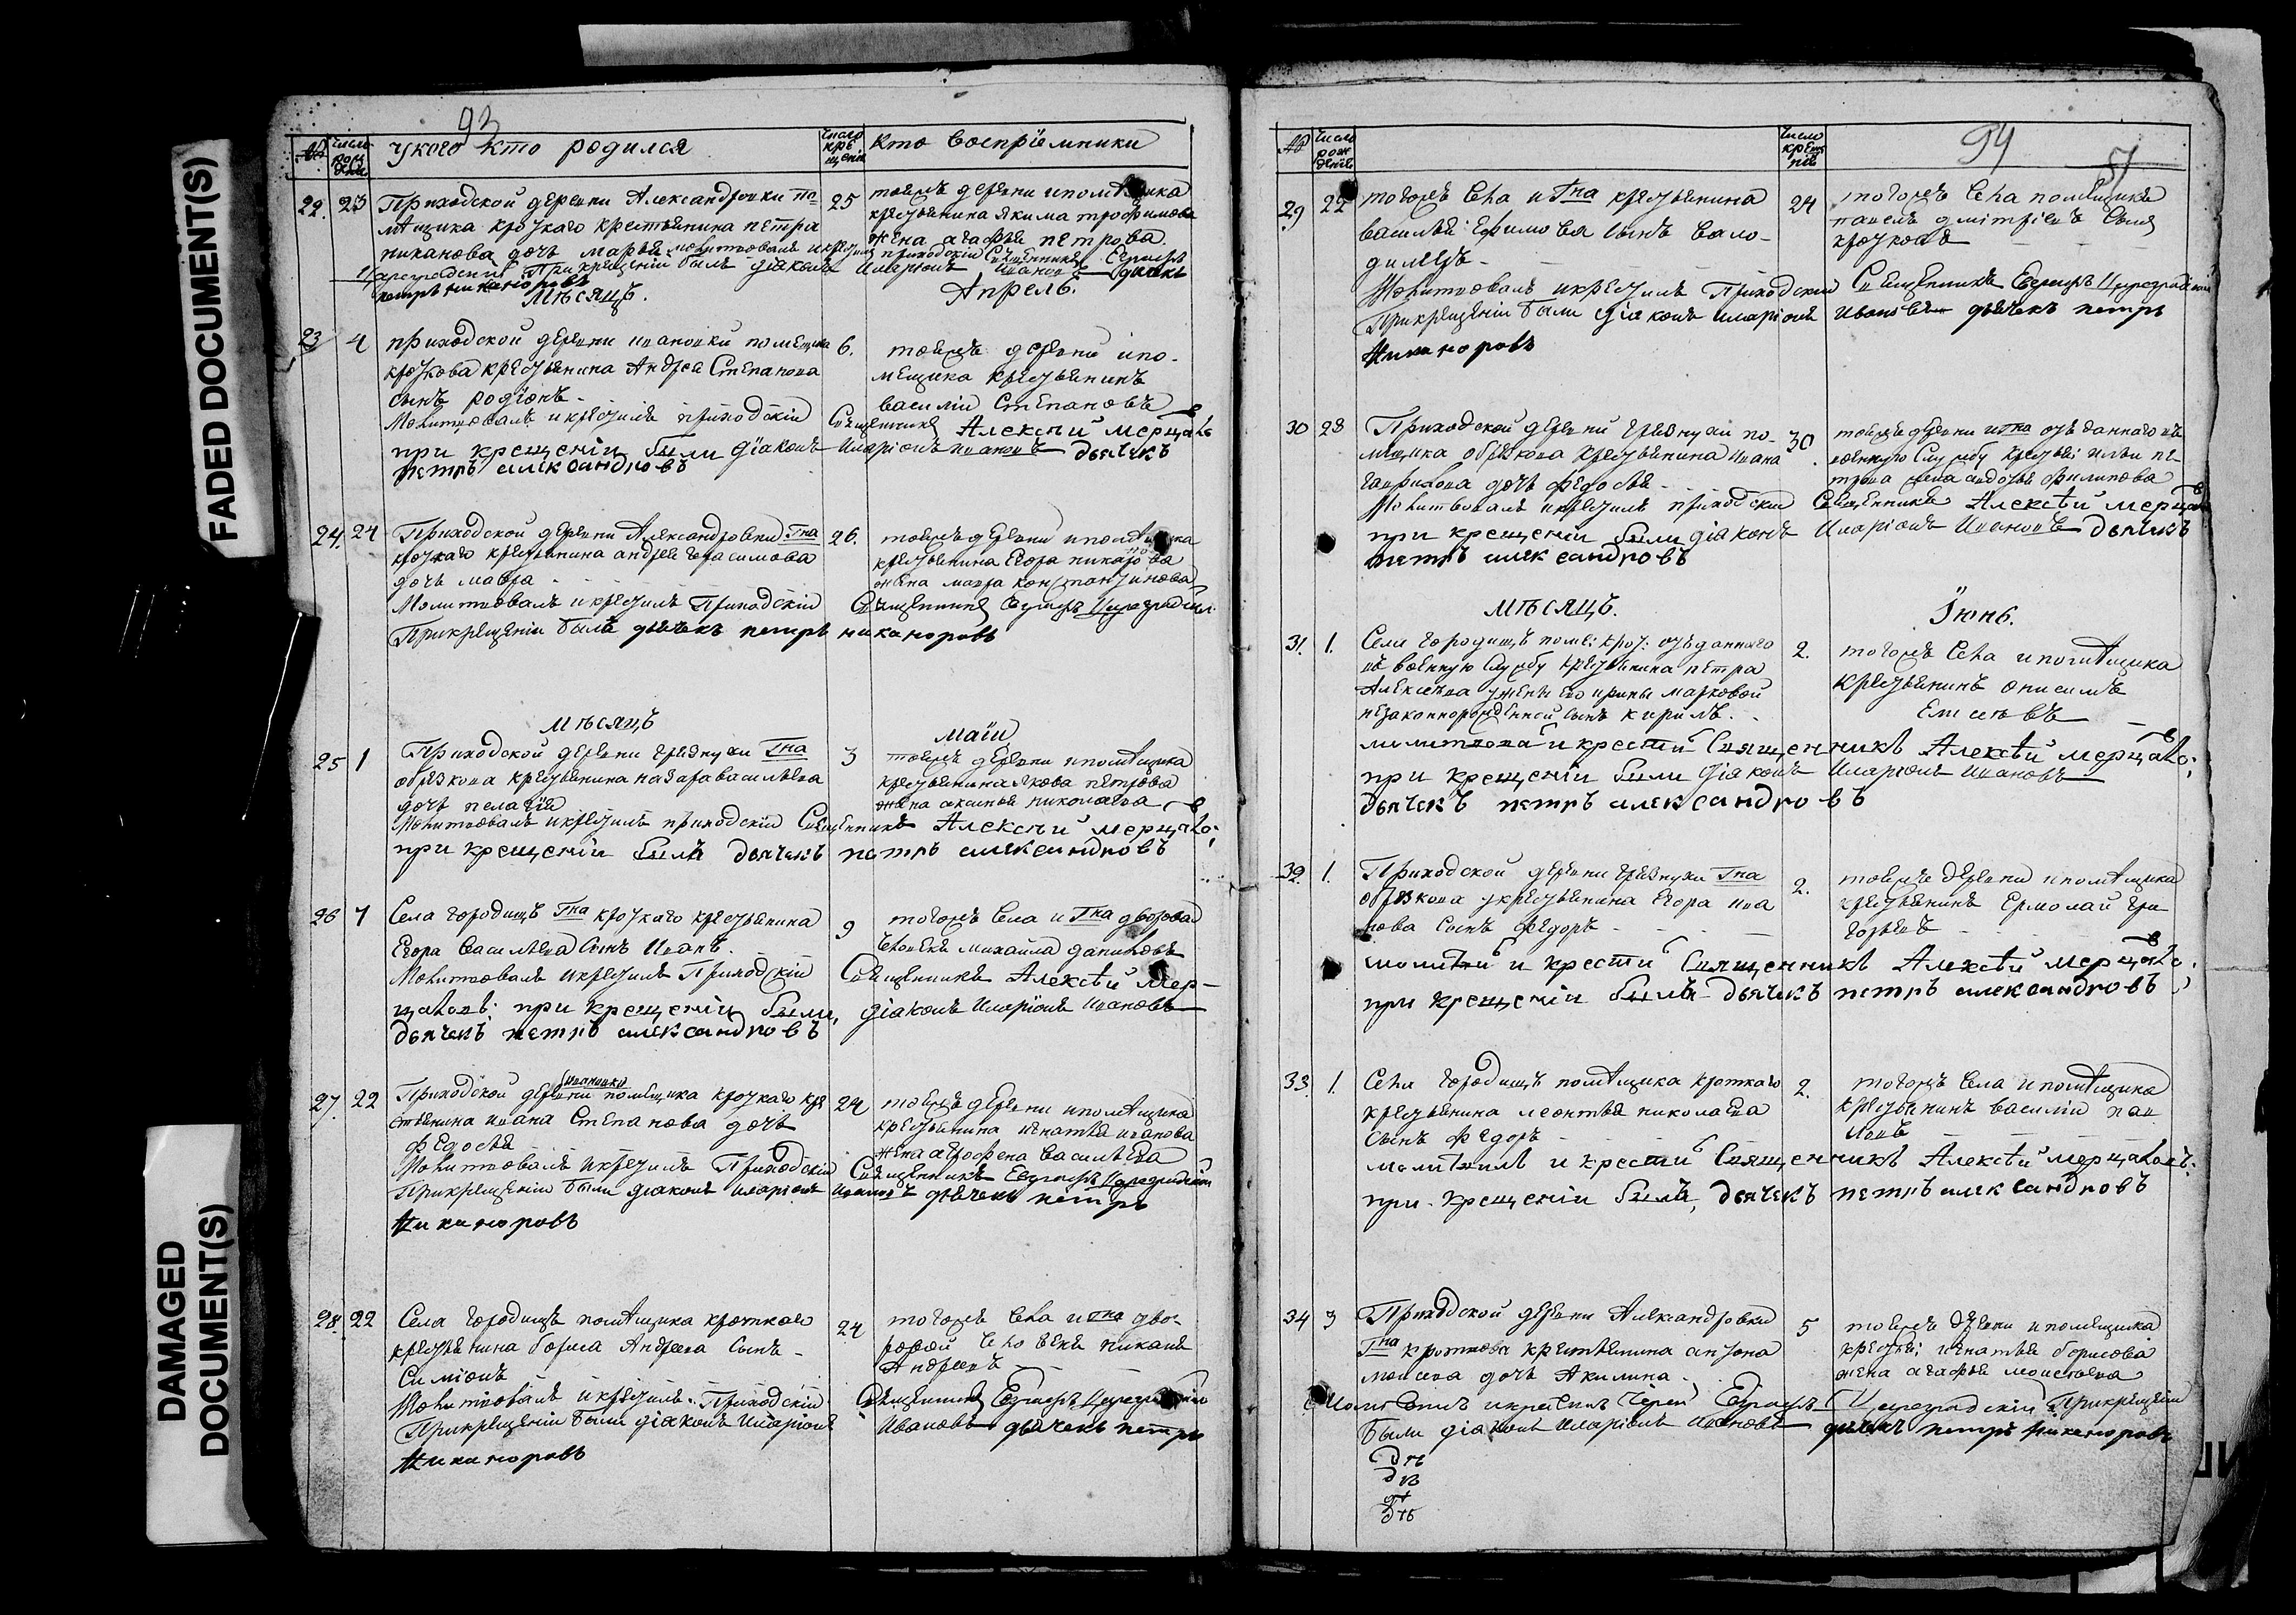 FADED DOCUMENT(S)
DAMAGED
DOCUMENT(S)
93
№
число рож дения
у кого кто родился
число кре щенія
кто воспріемники
22. 23
Приходской деревни Александровки по
мѣщика кроткаго крестьянина петра
никанова дочь марья молитвовалъ и крестилъ приходскій Священникъ Евграфъ
Цареградскій При крещеніи былъ діаконъ Иларіонъ Ивановъ дьячекъ
петръ никаноровъ
25
тоежъ деревни и помѣщика
крестьянина якима трофимова
жена агафья петрова
Мѣсяцъ. Апрель.
23 4
приходской деревни ивановки помещика
кроткова крестьянина Андрея Степанова
сынъ родіонъ -
Молитвовалъ и крестилъ приходскій Священникъ Алексѣй мерцаловъ
при крещеніи были діаконъ Иларіонъ ивановъ дьячекъ
петръ александровъ
6.
тоежъ деревни и по-
мещика крестьянинъ
василій Степановъ
24. 24
Приходской деревни Александровки Гна
кроткаго крестьянина андрея герасимова
дочь мавра
Молитвовалъ и крестилъ Приходскій Священникъ Евграфъ Цареградскій
При крещеніи былъ дьячекъ петръ никаноровъ
26.
тоежъ деревни и помѣщика
крестьянина Егора никанрова
жена мавра константинова
Мѣсяцъ маій
25 1
Приходской деревни грязнухи Гна
обрѣскова крестьянина назара васильева
дочь пелагія
Молитвовалъ и крестилъ приходскій Священникъ Алексѣй мерцаловъ;
при крещеніи былъ дьячекъ петръ александровъ
3
тоежъ деревни и помѣщика
крестьянина якова петрова
жена аксинья николаева
26 7
Села городищъ Гна кроткаго крестьянина
Егора Васильева Сынъ Иванъ.
Молитвовалъ и крестилъ Приходскій Священникъ Алексѣй Мер-
цаловъ: при крещеніи были, діаконъ Иларіонъ Ивановъ
дьячекъ петръ александровъ
9
тогожъ Села и Гна дворовой
человекъ михайла даниловъ
27. 22
Приходской деревни ивановки помещика кроткаго кре
стьянина ивана Степанова дочь
федосья
Молитвовалъ и крестилъ Приходскій Священникъ Евграфъ Цареградскій
При крещеніи были діаконъ иларіонъ Ивановъ дьячекъ петръ
Никаноровъ
24
тоежъ деревни и помѣщика
крестьянина игнатья иванова
жена аграфена Васильева
28. 22
Села городищъ помѣщика кроткаго
крестьянина бориса Андреева Сынъ -
Симіонъ
Молитвовалъ и крестилъ Приходскій Священникъ Евграфъ Цареградскій
При крещеніи были діаконъ Иларіонъ Ивановъ дьячекъ петръ
Никаноровъ
24
тогожъ Села и Гна дво-
ровой человекъ
Андреевъ
94
51
№
число рож денія
число креще нія
29 22
тогожъ Села и Гна крестьянина
василья Ефимова Сынъ Вало-
димеръ -
Молитвовалъ и крестилъ Приходскій Священникъ Евграфъ Цареградскій
При крещеніи были діаконъ иларіонъ Ивановъ дьячекъ петръ
Никаноровъ
24
тогожъ Села помѣщикъ
павелъ дмитріевъ Сынъ
кроткой
30 28
Приходской деревни грязнухи по-
мещика обрѣскова крестьянина ивана
гаврилова дочь федосья -
Молитвовалъ и крестилъ приходскій Священникъ Алексѣй мерцаловъ
при крещеніи были діаконъ Иларіонъ Ивановъ дьячекъ
петръ александровъ
30.
тоежъ деревни и гна отъданнаго въ
военную Службу крестья: ильи пе-
трова жена авдотья филипова
мѣсяцъ. Іюнь.
31. 1.
Села городищъ поме: крот: отъданнаго
въ военную Службу крестьянина петра
Алексѣева у жены его ирины марковой
незаконнорожденной сынъ кирилъ. -
молитвова и крести Священникъ Алексѣй мерцаловъ;
при крещеніи были діаконъ Иларіонъ Ивановъ
дьячекъ петръ александровъ
2.
тогожъ Села и помѣщика
крестьянинъ онисимъ
Елисеевъ
32. 1.
Приходской деревни грязнухи Гна
обрѣскова у крестьянина Егора ива
нова Сынъ федоръ
молитви и крести Священникъ Алексѣй мерцаловъ.
при крещеніи былъ дьячекъ петръ александровъ
2.
тоежъ деревни и помѣщика
крестьянинъ Ермолай гри
горьевъ
33. 1.
Села городищъ помѣщика кроткаго
крестьянина леонтья николаева
сынъ федоръ
молитвилъ и крести Священникъ Алексѣй мерцаловъ:
при крещеніи былъ, дьячекъ петръ александровъ
2.
тогожъ Села и помѣщика
крестьянинъ василій пав
ловъ
34 3
Приходской деревни Александровки
Гна кроткова крестьянина антона
моисеева дочь Акилина
Молитвилъ и крестилъ Іерей Евграфъ Цареградскій При крещеніи
были діаконъ Иларіонъ Ивановъ дьячекъ петръ Никаноровъ
5
тоежъ деревни и помещика
крестья: игнатья борисова
жена агафья моисеева